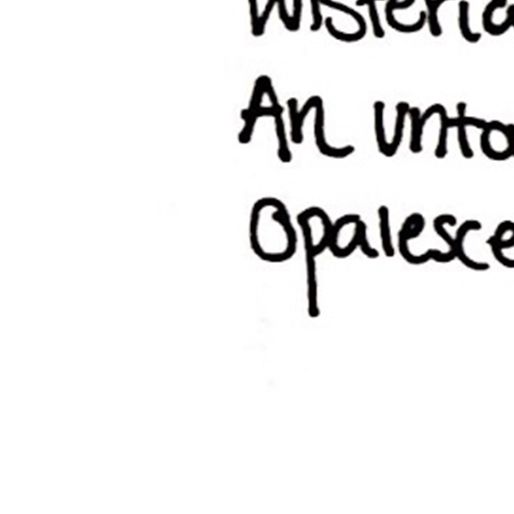 Wisteria
An unto
Opalesce